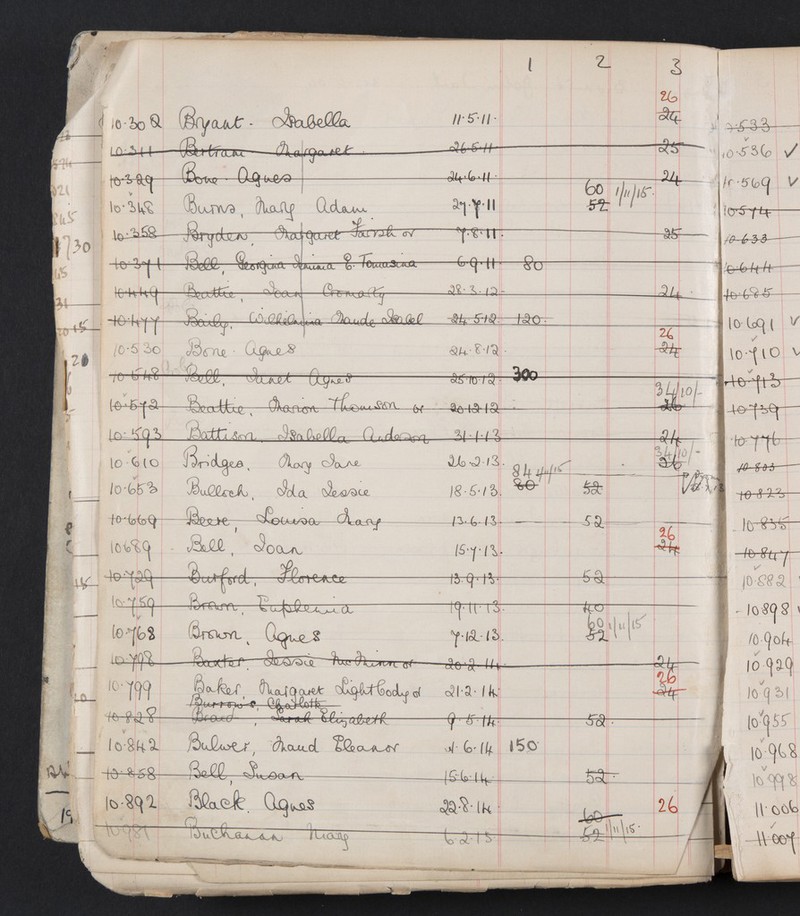 1 2 3
26
10·302 Bryant - Isabella 11·5·11· 24
10·311 Bertram Margaret 26·5·11 25
10·329 Bone - Agnes 24·6·11· 24
60 1/11/15·
10·348 Burns, Mary Adam 27·7·11 52
10·358 Bryden, Margaret Farish or 7·8·11· 25
10·371 Bell, Georgina Jemima E. Tomasina 6·9·11 80
10·449 Beattie, Jean Cromarty 28·3·12 24
10·477 Baily, Wilhelmina Maude Isabel 24·5·12 120
26
10·530 Bone - Agnes 24·8·12 24
10·548 Bell, Janet Agnes 25·10·12 300
34/10/-
10·572 Beattie, Marion Thomson or 20·12·12 26
10·593 Battison, Isabella Anderson 31·1·13 24
34/10/-
10·610 Bridges, Mary Jane 26·2·13 26
84 4/11/15
10·653 Bulloch, Ida Jessie 18·5·13 80 52
10·669 Beere, Louisa Mary 13·6·13 52
26
10689 Bell, Joan 15·7·13 24
10·729 Burford, Florence 13·9·13 52
10·759 Brown, Euphemia 19·11·13 40
60 1/11/15
10·768 Brown, Agnes 7·12·13 52
10·798 Baxter, Jessie McMinn or 20·2·14 24
26
10·799 Baker, Margaret Lightbody or 21·2·14 24
Burrows, Charlotte
10·828 Beard, Sarah Elizabeth 9·5·14 52
10·842 Bulwer, Maud Eleanor 6·14 150
10·858 Bell, Susan 15·6·14 52
10·892 Black, Agnes 22·8·14 26
60
10981 Buchanan Mary 6·2·15 52 1/11/15·
10·536 ✓
11·569 ✓
10574
10·633
10·644
10·685
10·691 ✓
10·710 ✓
10·713
10·739
10·776
10·803
10·823
10·835
10·847
10·882
10898 ✓
10·904
10·929
10·931
10·955
10·968
10·998
11·006
11·007